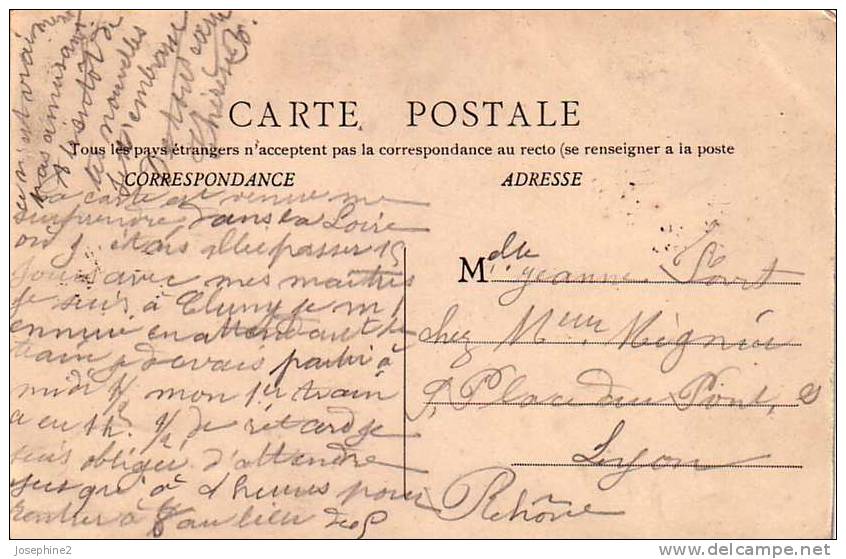 CARTE POSTALE
Tous les pays étrangers n'acceptent pas la correspondance au recto (se renseigner a la poste
CORRESPONDANCE ADRESSE
La carte est venue me
surprendre dans la Loire
où j'étais allée passer 15
jours avec mes maîtres
je suis à Cluny je m'
ennuie en attendant le
train je devais partir à
midi 1/2 mon 1er train
a eu 1h. 1/2 de retard je
suis obligée d'attendre
jusqu'à 4 heures pour
rentrer à 8 au lieu de 5
ce n'est vraiment
pas amusant
à bientôt de
tes nouvelles
je t'embrasse
Thérèse
Mdlle Jeanne
chez Mme Mignié
9, Place du Pont, 9
Lyon
Rhône
Josephine2
delcampe.net